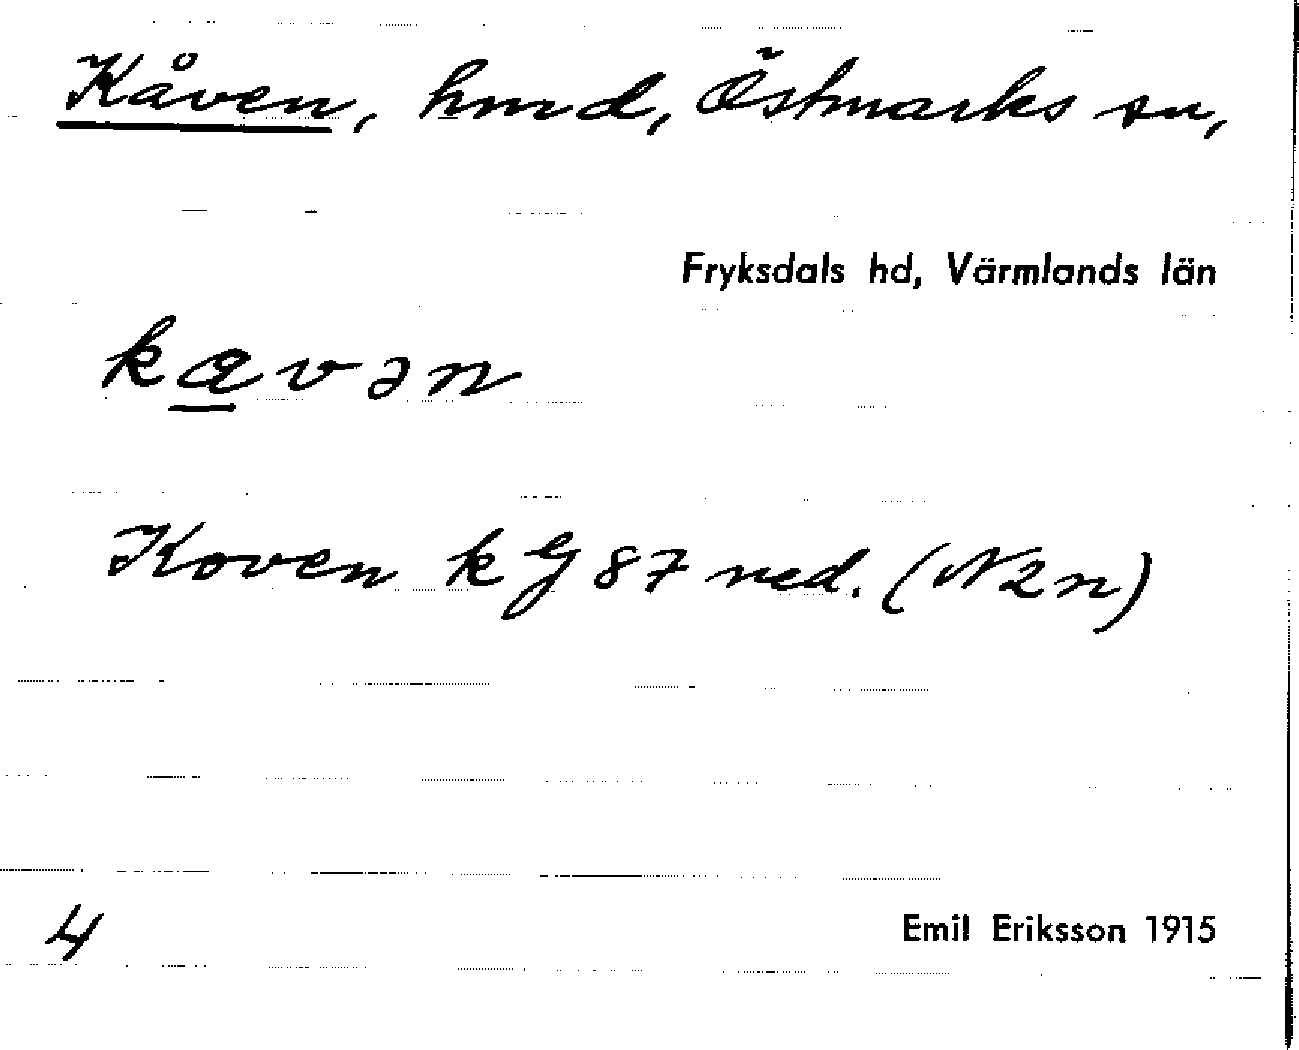 Kåven, hmd, Östmarks sn,
Fryksdals hd, Värmlands län
kævən
Koven k G 87 ned. (N2n)
4
Emil Eriksson 1915